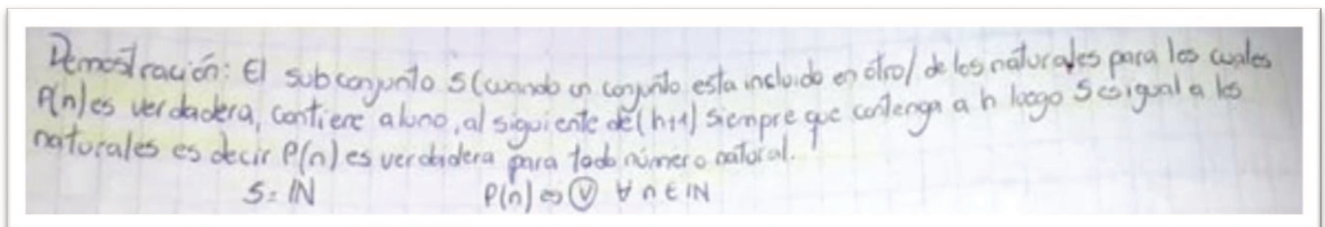 Demostración: El subconjunto S (cuando un conjunto esta incluido en otro) de los naturales para los cuales
P(n) es verdadera, contiene al uno, al siguiente de (h+1) siempre que contenga a h luego S es igual a los
naturales es decir P(n) es verdadera para todo número natural.
S = IN P(n) es Ⓥ ∀ n ∈ IN